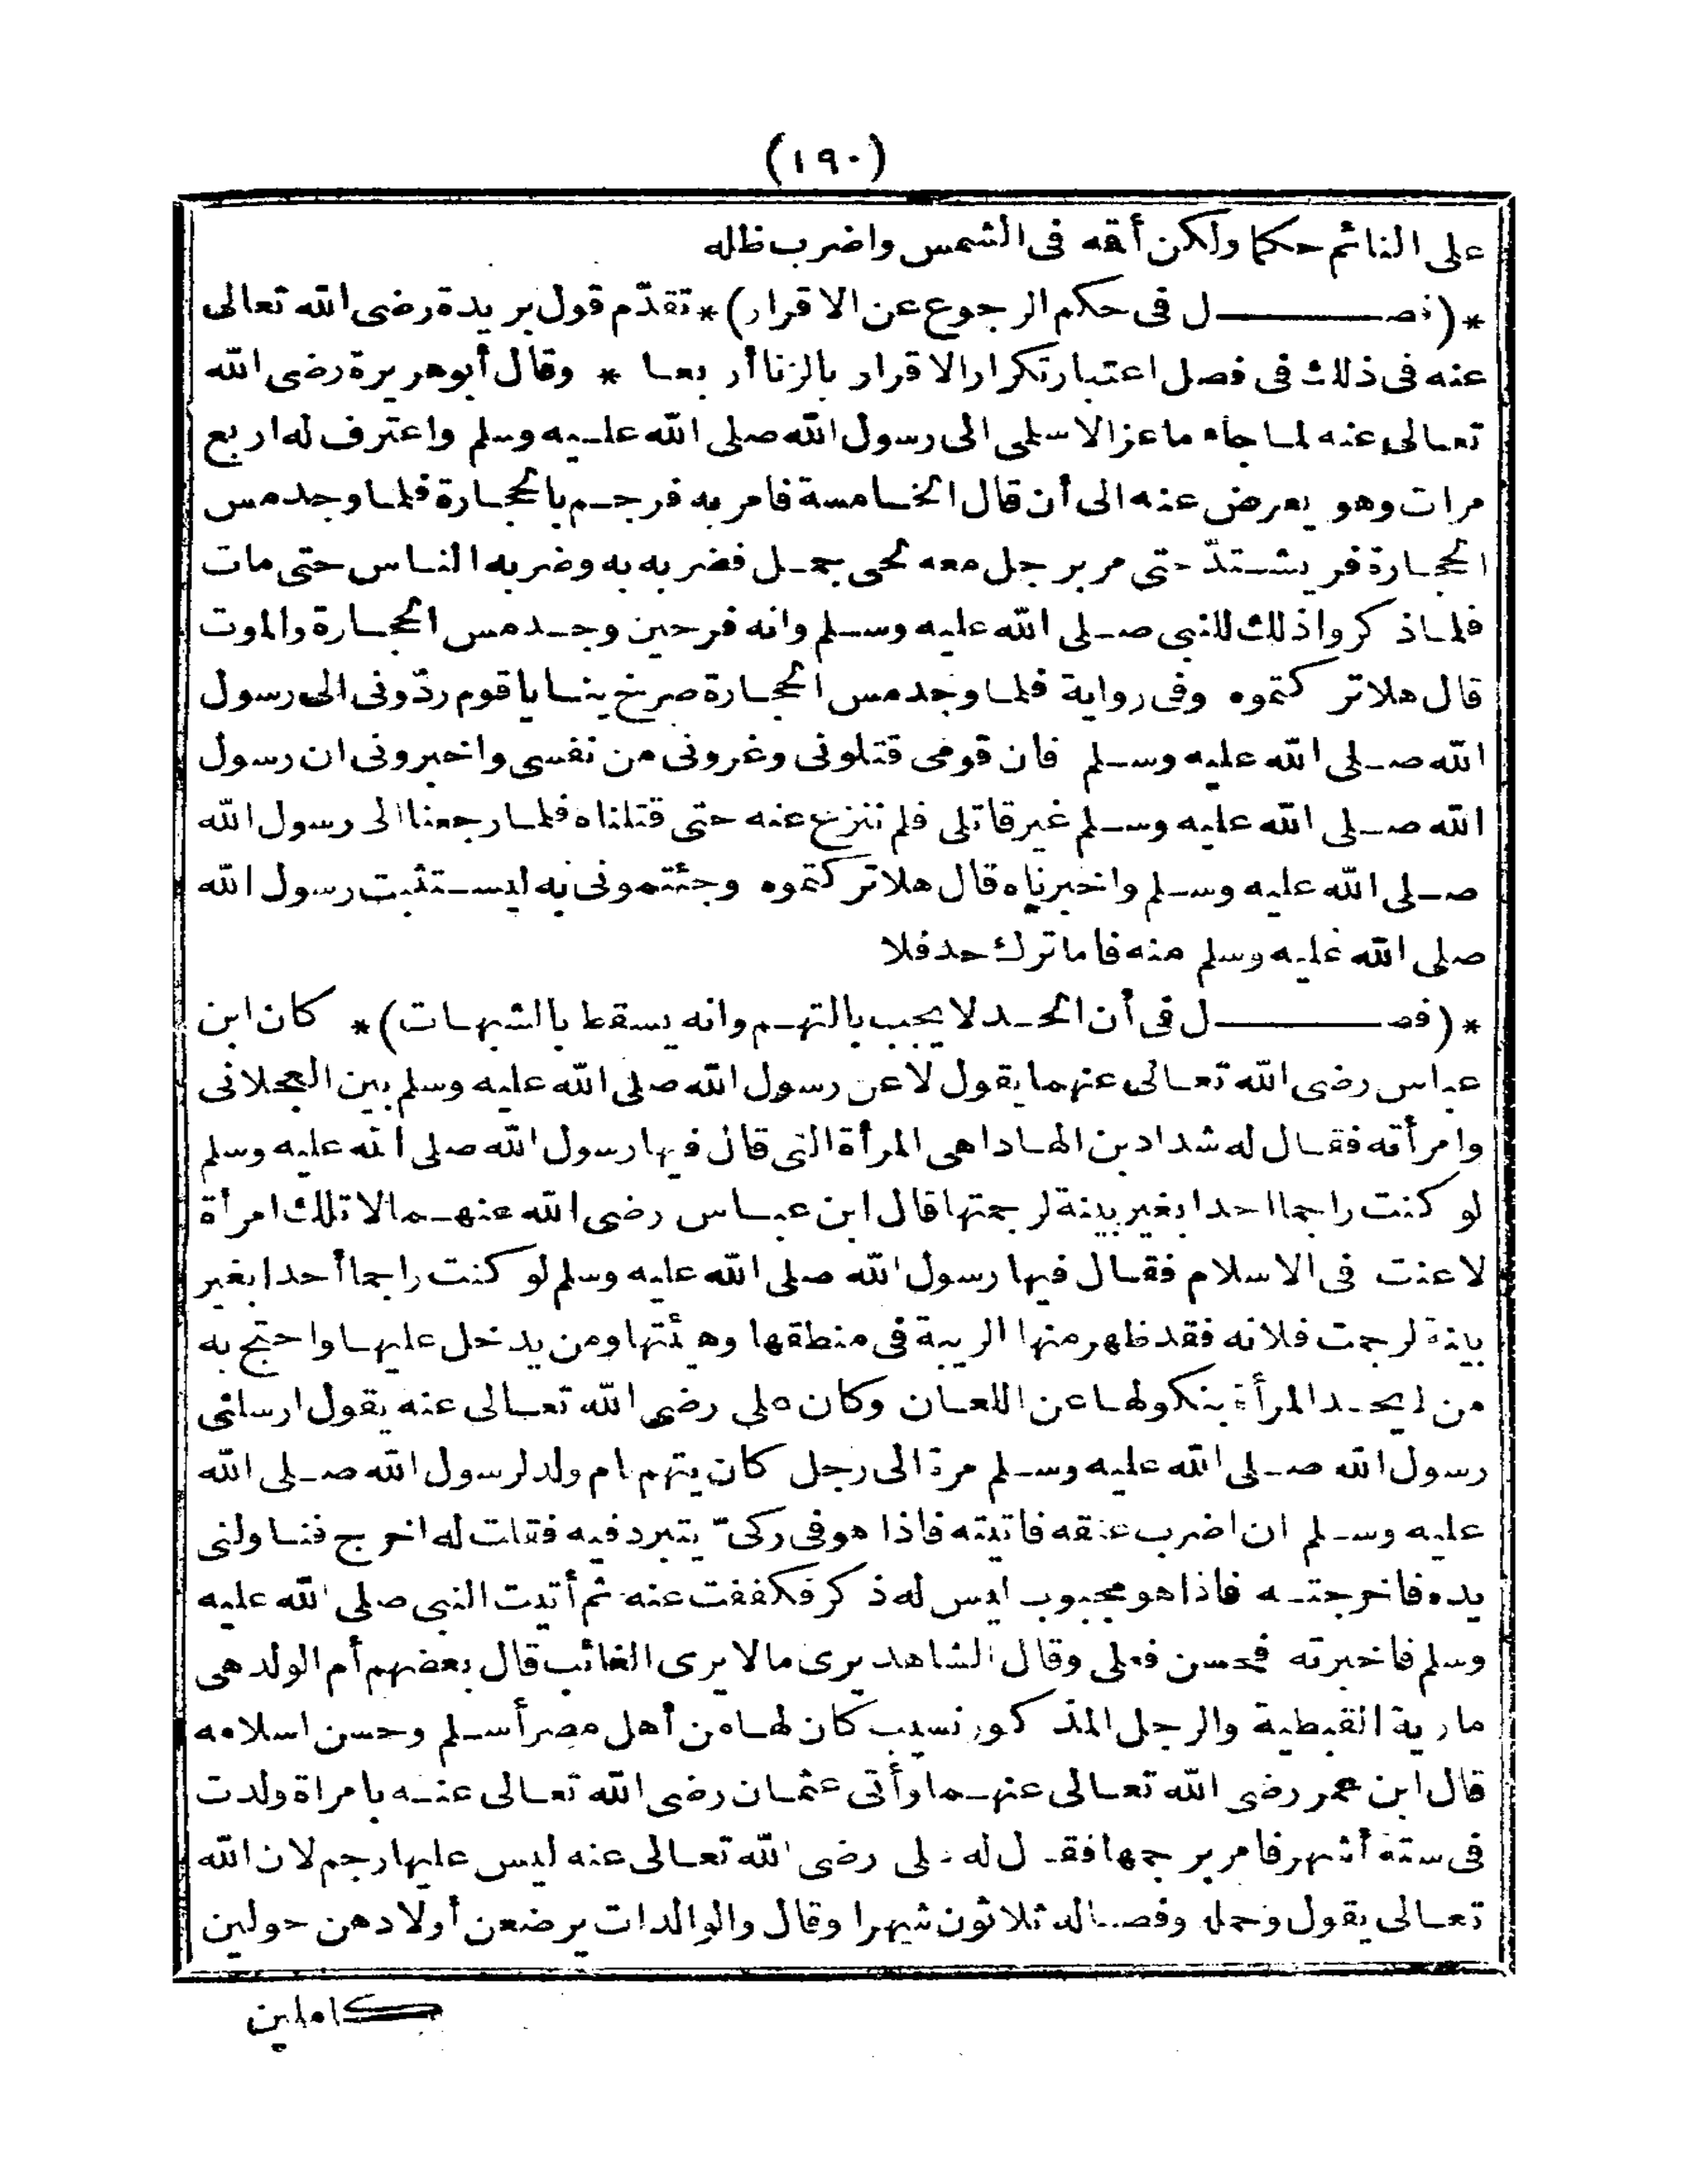 (١٩٠)
على النائم حكما ولكن أقه فى الشمس واضرب ظله
*(فصـــــل فى حكم الرجوع عن الاقرار)* تقدّم قول بريدة رضى الله تعالى
عنه فى ذلك فى فصل اعتبار تكرار الاقرار بالزنا أربعا * وقال أبو هريرة رضى الله
تعالى عنه لما جاء ماعز الاسلمى الى رسول الله صلى الله عليه وسلم واعترف له اربع
مرات وهو يعرض عنه الى أن قال الخامسة فامر به فرجم بالحجارة فلما وجد مس
الحجارة فر يشتدّ حتى مر برجل معه لحى جمل فضربه به وضربه الناس حتى مات
فلما ذكروا ذلك للنبى صلى الله عليه وسلم وانه فر حين وجد مس الحجارة والموت
قال هلا تركتموه وفى رواية فلما وجد مس الحجارة صرخ بنا يا قوم ردّونى الى رسول
الله صلى الله عليه وسلم فان قومى قتلونى وغرونى من نفسى واخبرونى ان رسول
الله صلى الله عليه وسلم غير قاتلى فلم ننزع عنه حتى قتلناه فلما رجعنا الى رسول الله
صلى الله عليه وسلم واخبرناه قال هلا تركتموه وجئتمونى به ليستثبت رسول الله
صلى الله عليه وسلم منه فاما ترك حد فلا
*(فصـــــل فى أن الحد لا يجب بالتهم وانه يسقط بالشبهات)* كان ابن
عباس رضى الله تعالى عنهما يقول لاعن رسول الله صلى الله عليه وسلم بين العجلانى
وامرأته فقال له شداد بن الهاد اهى المرأة التى قال فيها رسول الله صلى الله عليه وسلم
لو كنت راجما احدا بغير بينة لرجمتها قال ابن عباس رضى الله عنهما لا تلك امرأة
لاعنت فى الاسلام فقال فيها رسول الله صلى الله عليه وسلم لو كنت راجما أحدا بغير
بينة لرجمت فلانه فقد ظهر منها الريبة فى منطقها وهيئتها ومن يدخل عليها واحتج به
من لم يحد المرأة بنكولها عن اللعان وكان على رضى الله تعالى عنه يقول ارسلنى
رسول الله صلى الله عليه وسلم مرة الى رجل كان يتهم ام ولد لرسول الله صلى الله
عليه وسلم ان اضرب عنقه فاتيته فاذا هو فى ركىّ يتبرد فيه فقلت له اخرج فناولنى
يده فاخرجته فاذا هو مجبوب ليس له ذكر فكففت عنه ثم أتيت النبى صلى الله عليه
وسلم فاخبرته فحسن فعلى وقال الشاهد يرى ما لا يرى الغائب قال بعضهم أم الولد هى
مارية القبطية والرجل المذكور نسيب كان لها من أهل مصر أسلم وحسن اسلامه
قال ابن عمر رضى الله تعالى عنهما وأتى عثمان رضى الله تعالى عنه بامراة ولدت
فى ستة أشهر فامر برجمها فقال له على رضى الله تعالى عنه ليس عليها رجم لان الله
تعالى يقول وحمله وفصاله ثلاثون شهرا وقال والوالدات يرضعن أولادهن حولين
كاملين